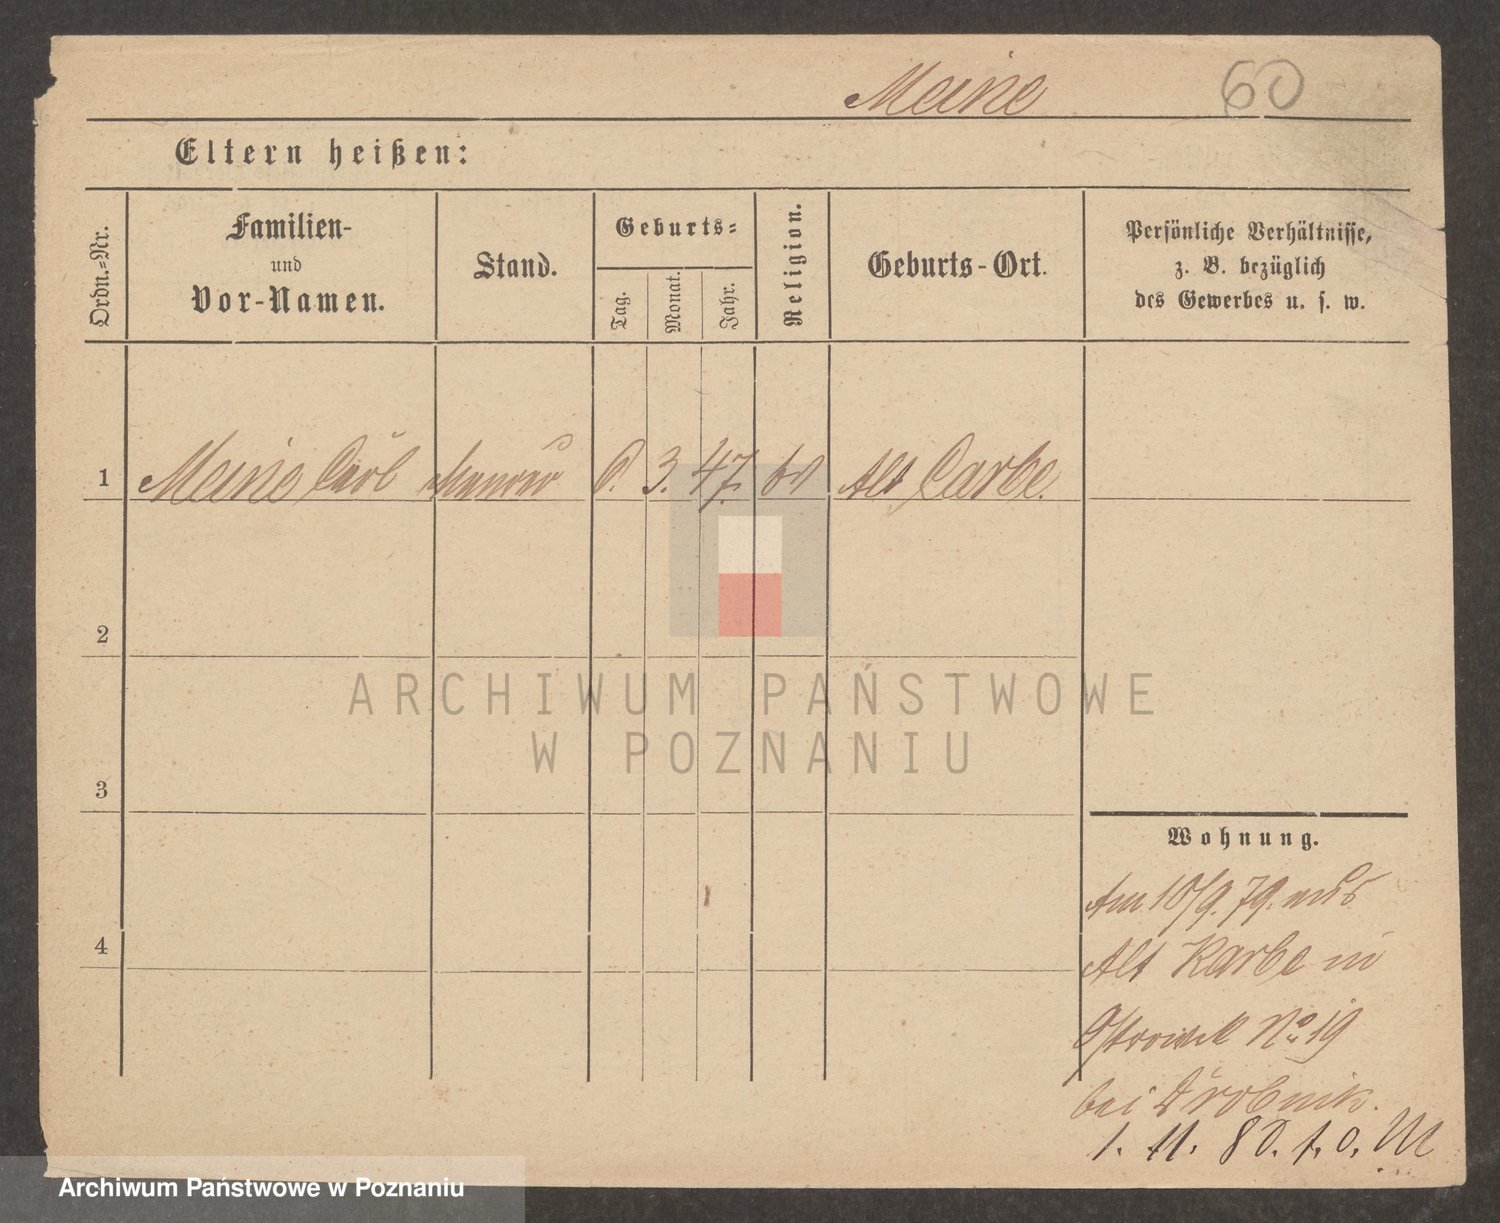 Meine 60
Eltern heißen:
Ordn.=Nr.
Familien-
und
Vor-Namen.
Stand.
Geburts=
Tag.
Monat.
Jahr.
Religion.
Geburts-Ort.
Persönliche Verhältnisse,
z. B. bezüglich
des Gewerbes u. s. w.
1 Meine Carl Maurer 6. 3. 47. ev Alt Carbe.
2
3
4
Wohnung.
Am 10/9. 79. aus
Alt Karbe in
Ostrowek No 19
bei Drobnik.
1. 11. 80. f. o. M
ARCHIWUM PAŃSTWOWE
W POZNANIU
Archiwum Państwowe w Poznaniu